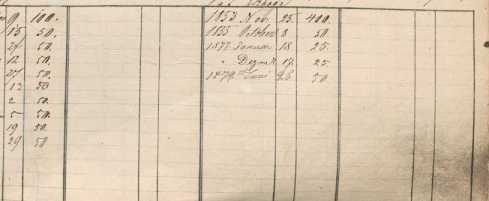 9 100.
15 50.
27 50.
12 50.
27 50.
12 50
2 50.
5 50.
19 50.
29 50
1853 Nov 25. 400.
1855 October 8 50.
1877 Januar 18 25.
" Dezmb 17. 25
1879 Juni 26 50